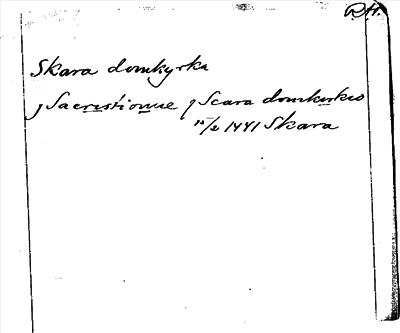 R.H.
Skara domkyrka
j Sacristionne j Scara domkirkio
15/2 1441 Skara